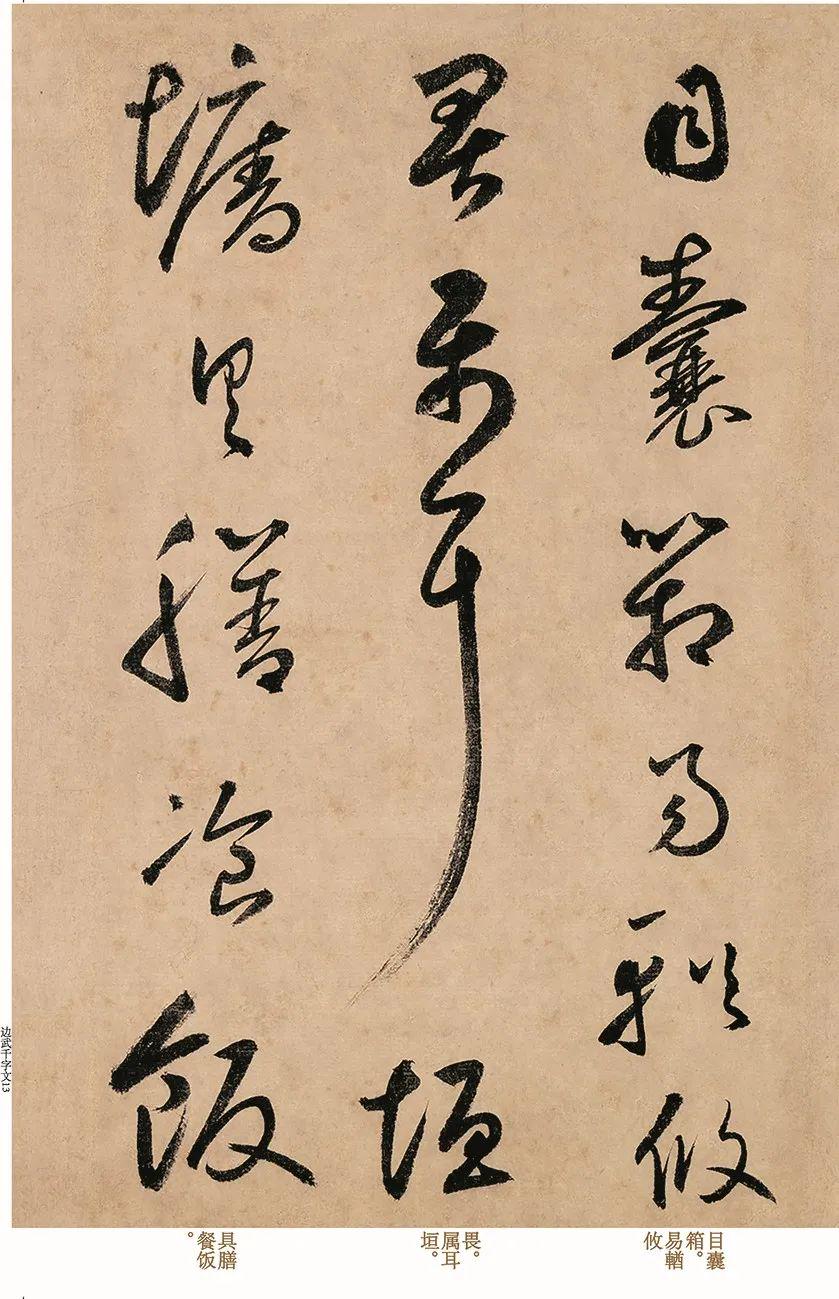 目囊箱易輶攸
畏属耳垣
墙具膳飡饭
目囊
箱。
易輶
攸
畏。
属耳
垣。
具膳
餐饭
。
边武千字文13